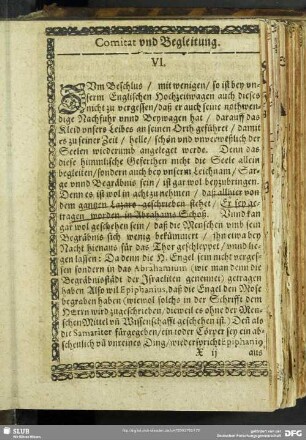 Comitat vnd Begleitung.
VI.
ZVm Beschlus / mit wenigen / so ist bey vn-
serm Englischen Hochzeitwagen auch dieses
nicht zu vergessen / daß er auch seine nothwen-
dige Nachfuhr vnnd Beywagen hat / darauff das
Kleid vnsers Leibes an seinen Orth geführet / damit
es zu seiner Zeit / helle / schön vnd vnverweßlich der
Seelen wiederumb angeleget werde. Denn das
diese himmlische Geferthen nicht die Seele allein
begleiten / sondern auch bey vnserm Leichnam / Sar-
ge vnnd Begräbnis sein / ist gar wol beyzubringen.
Denn es ist wol in acht zunehmen / daß allhier von
dem gantzen Lazaro geschrieben stehet / Er sey ge-
tragen worden in Abrahams Schoß. Vnnd kan
gar wol geschehen sein / daß die Menschen vmb sein
Begräbnis sich wenig bekümmert / ihn etwa bey
Nacht hienaus für das Thor geschleppet / vnnd lie-
gen lassen: Da denn die H. Engel sein nicht verges-
sen sondern in das Abrahamium (wie man denn die
Begräbnisstädt der Israeliten genennet) getragen
haben Also wil Epiphanius, daß die Engel den Mose
begraben haben (wiewol solchs in der Schrifft dem
HErrn wird zugeschrieben / dieweil es ohne der Men-
schen Mittel vñ Wissenschafft geschehen ist.) Deñ als
die Samariter fürgegeben / ein todter Cörper sey ein ab-
schewlich vñ vnreines Ding / wiederspricht Epiphanio
X ij
aus
SLUB
DFG